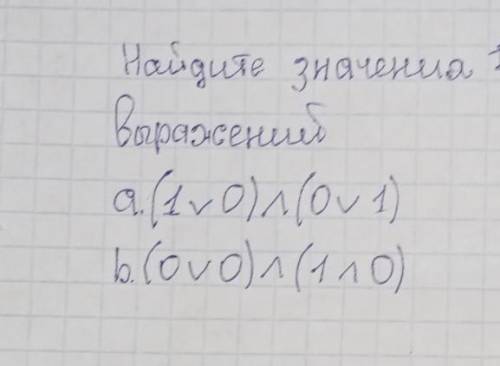 Найдите значения
выражений
a. (1 ∨ 0) ∧ (0 ∨ 1)
b. (0 ∨ 0) ∧ (1 ∧ 0)